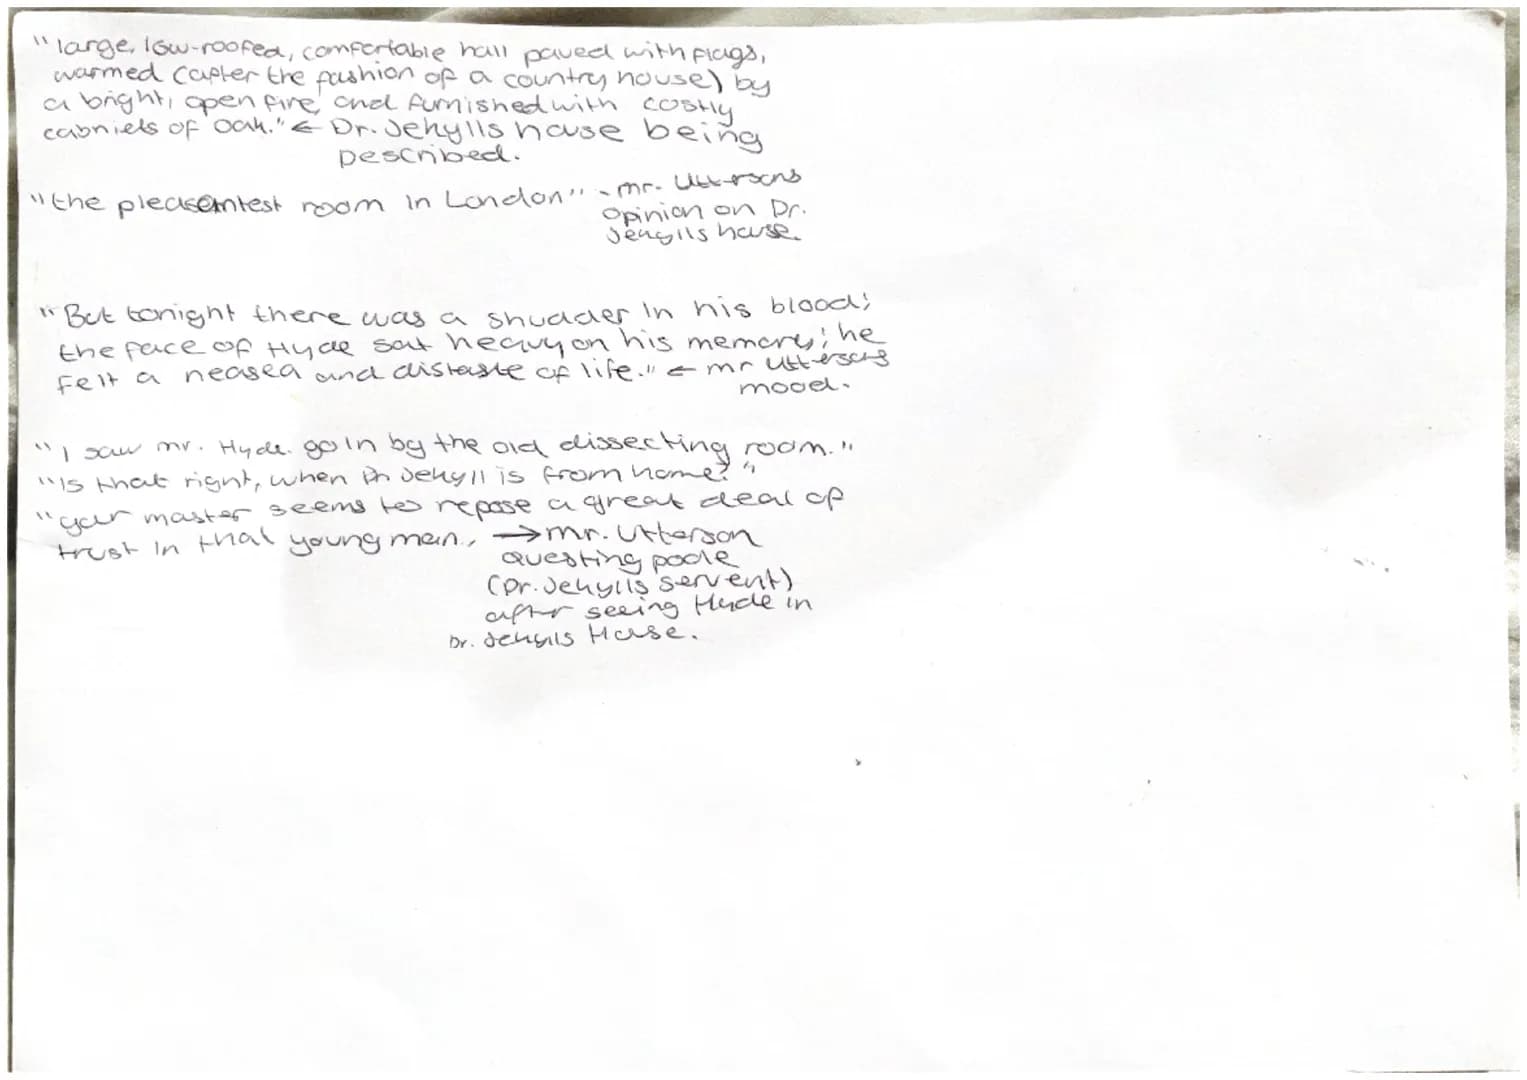 "large, low-roofed, comfortable hall paved with flags,
warmed (after the fashion of a country house) by
a bright, open fire, and furnished with costly
cabniets of Oak." ← Dr. Jekylls house being
Described.
"the pleasemtest room in London" - mr. Uttersons
opinion on Dr.
Jekylls house.
"But tonight there was a shudder in his blood;
the face of Hyde sat heavy on his memory; he
felt a neasea and distaste of life." ← mr Uttersons
mood.
"I saw mr. Hyde go in by the old dissecting room."
"Is that right, when Dr Jekyll is from home?"
"your master seems to repose a great deal of
trust in that young man., → mr. Utterson
questing poole
(Dr. Jekylls servent)
after seeing Hyde in
Dr. Jekylls House.